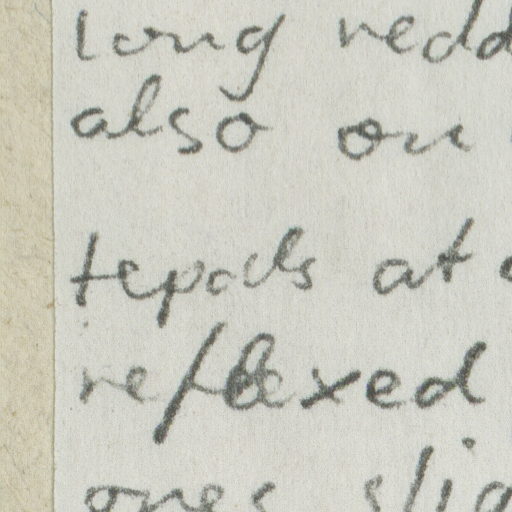 long redd
also on
tepals at
reflexed
ones slig